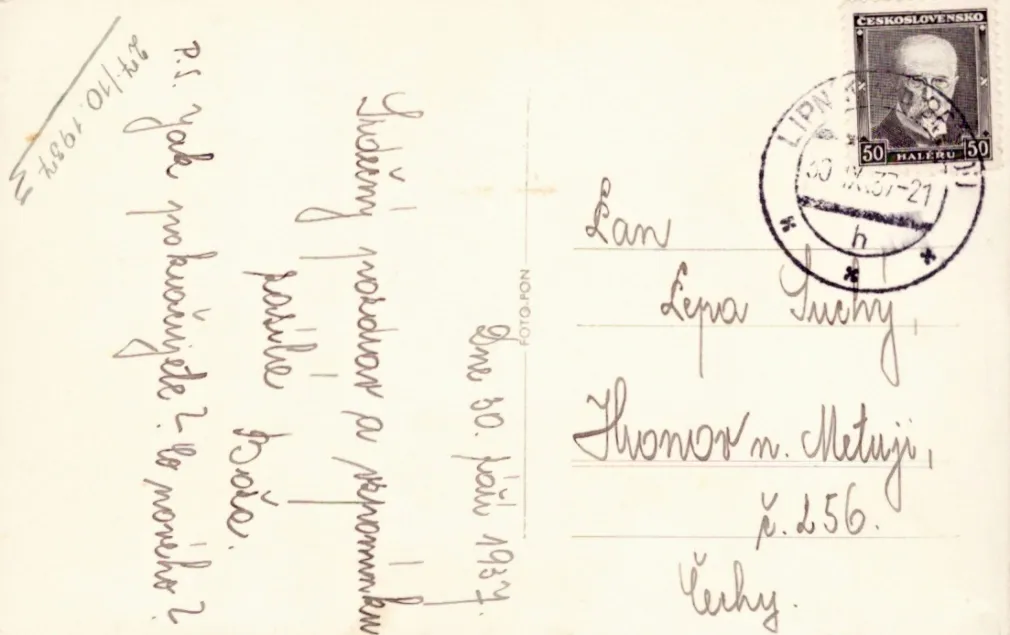 Dne 30. září 1937.
Srdečný pozdrav a vzpomínku
posílá
Boža.
P.S. Jak pokračujete? Co nového?
27./10. 1937
FOTO-FON
ČESKOSLOVENSKO
50 HALÉŘŮ 50
LIPN
30 IX.37-21
h
Pan
Lepa Suchý,
Hronov n. Metují,
č. 256.
Čechy.